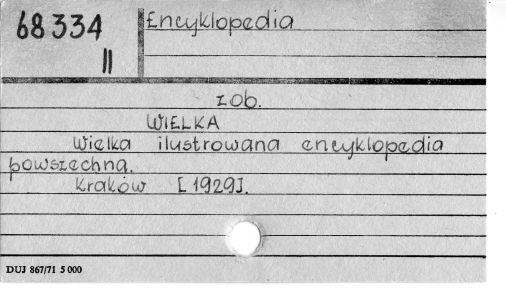 68334
II
Encyklopedia
zob.
WIELKA
Wielka ilustrowana encyklopedia
powszechna.
Kraków [1929].
DUJ 867/71 5 000